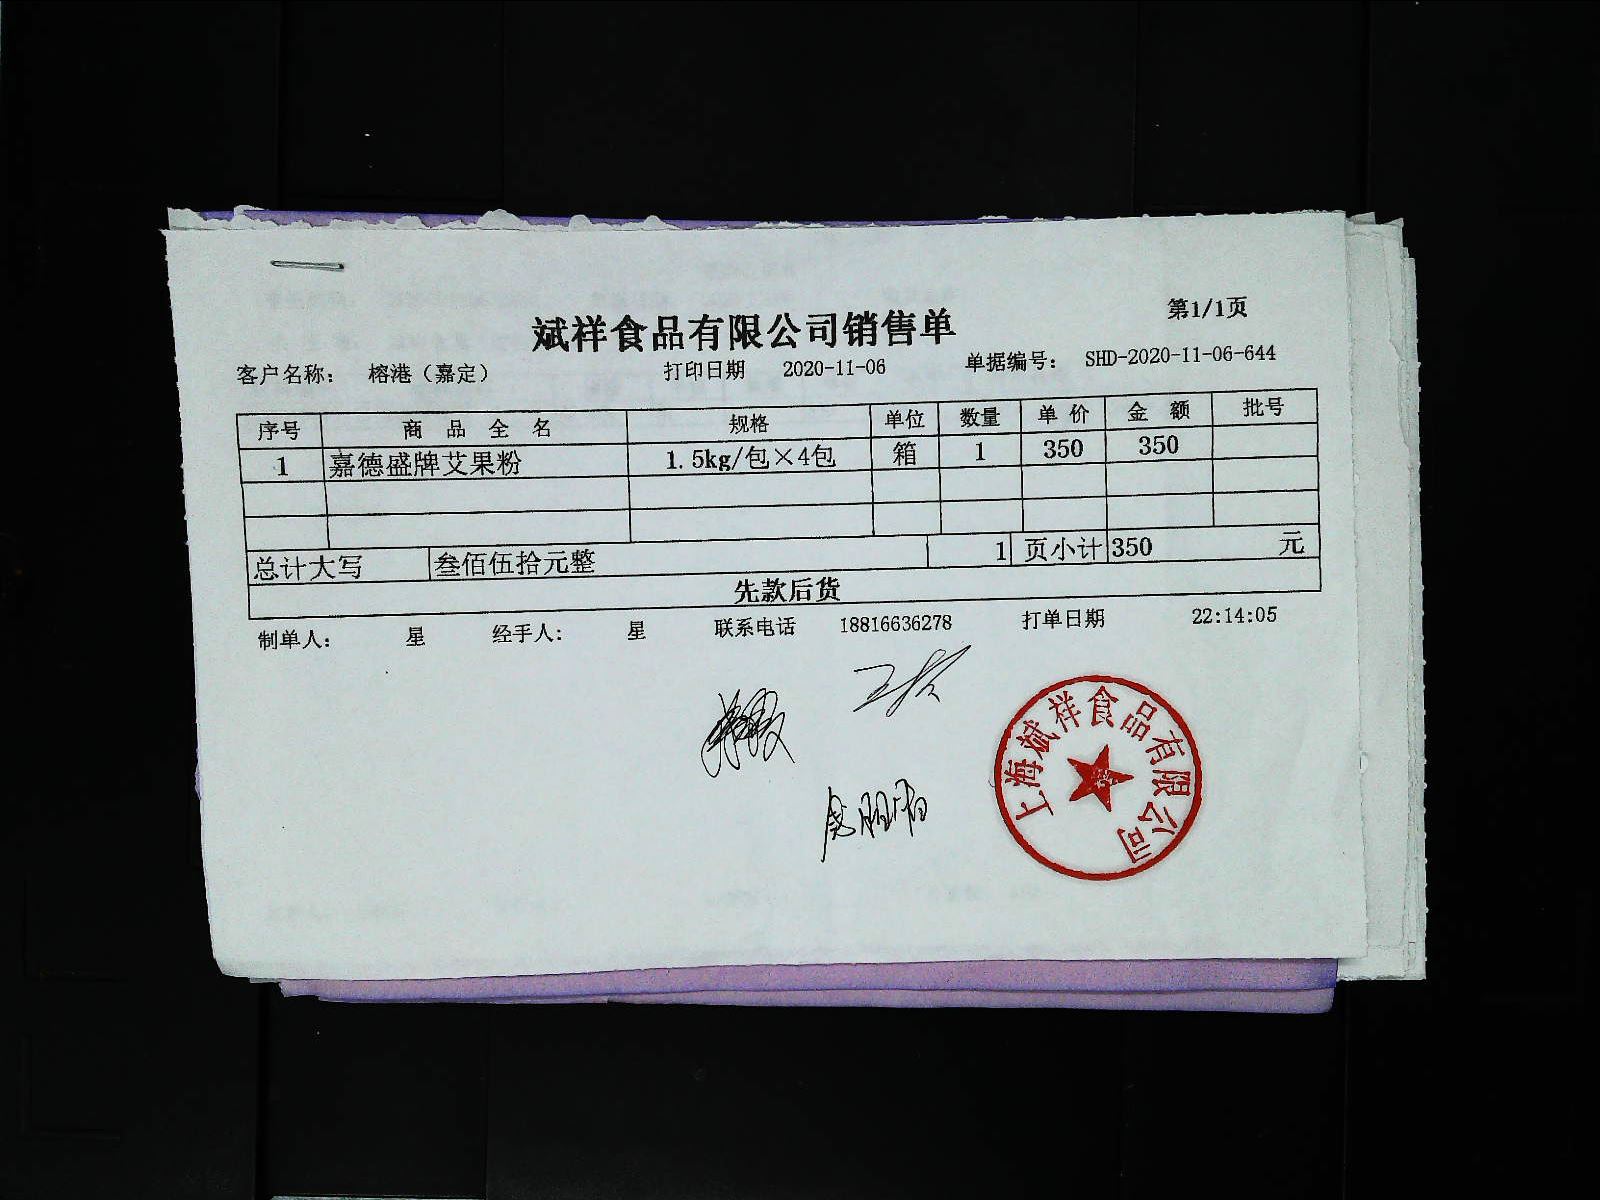 第1/1页
斌祥食品有限公司销售单
客户名称： 榕港（嘉定） 打印日期 2020-11-06 单据编号： SHD-2020-11-06-644
序号 商 品 全 名 规格 单位 数量 单 价 金 额 批号
1 嘉德盛牌艾果粉 1.5kg/包×4包 箱 1 350 350
总计大写 叁佰伍拾元整 1 页小计 350 元
先款后货
制单人： 星 经手人： 星 联系电话 18816636278 打单日期 22:14:05
上海斌祥食品有限公司